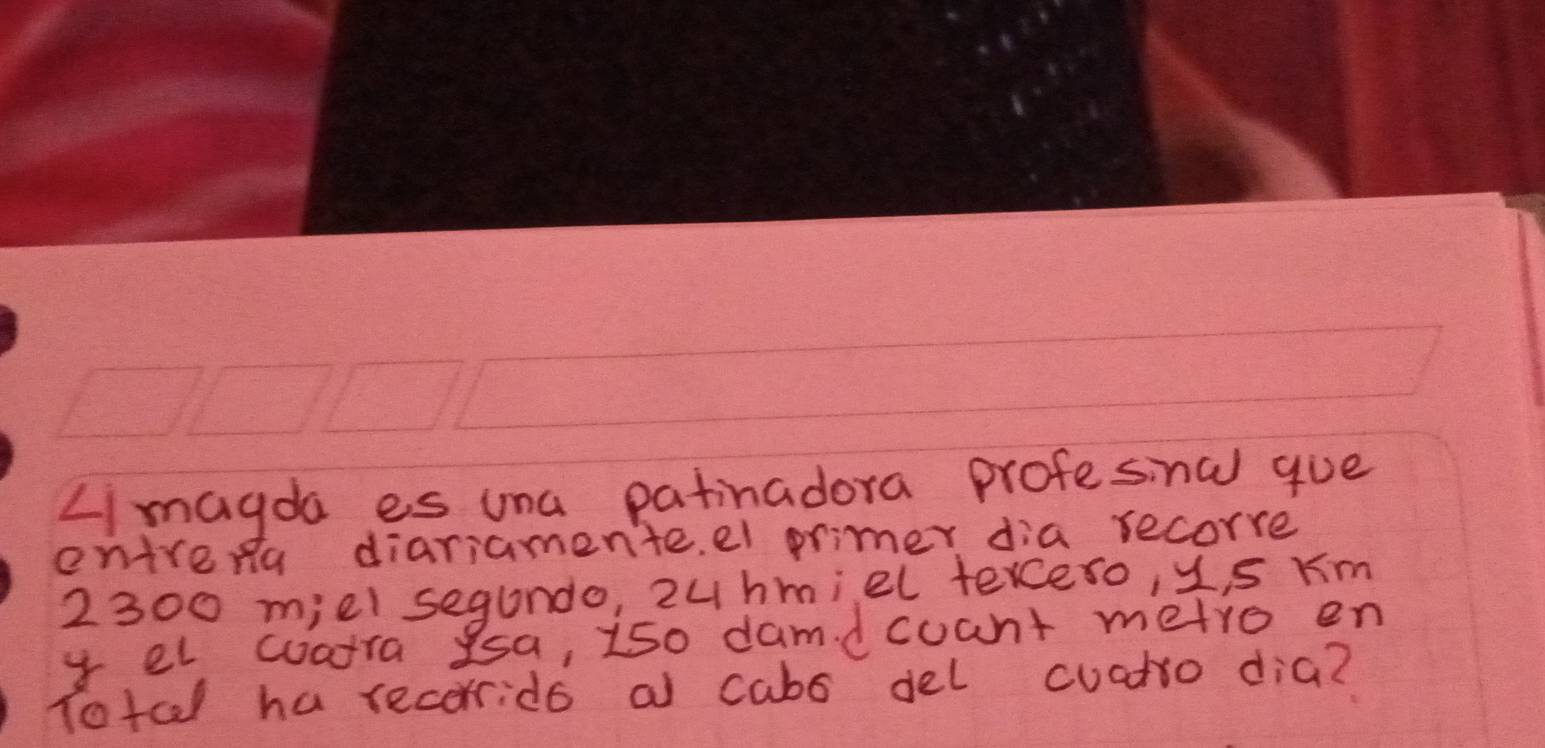 4) magda es una patinadora profesinal que
entrena diariamente. el primer dia recorre
2300 m; el segundo, 24 hm; el tercero, 1,5 Km
y el cuatra, 150 dam. ¿ cuant metro en
Total ha recorrido al cabo del cuatro dia?